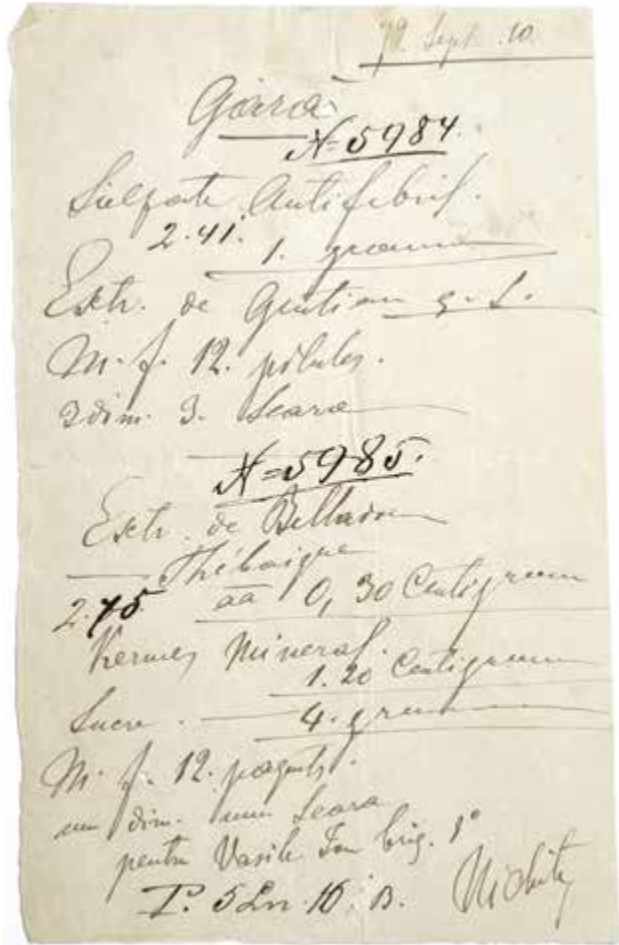 Sept. 10.
Gara
N=5984.
Antifebril.
2.41.
1. gramm
Extr. de Gentian q. S.
M. f. 12. pilules.
3 dim. 3. Seara
N=5985.
Extr. de Belladon
Thébaique
2.45 aa 0,30 Centigramm
Kermes Mineral.
1.20 Centigramm
Sucre. 4. gramm
M. f. 12. paquets.
un dim. unu Seara
pentru Vasile Ion brig. 1°